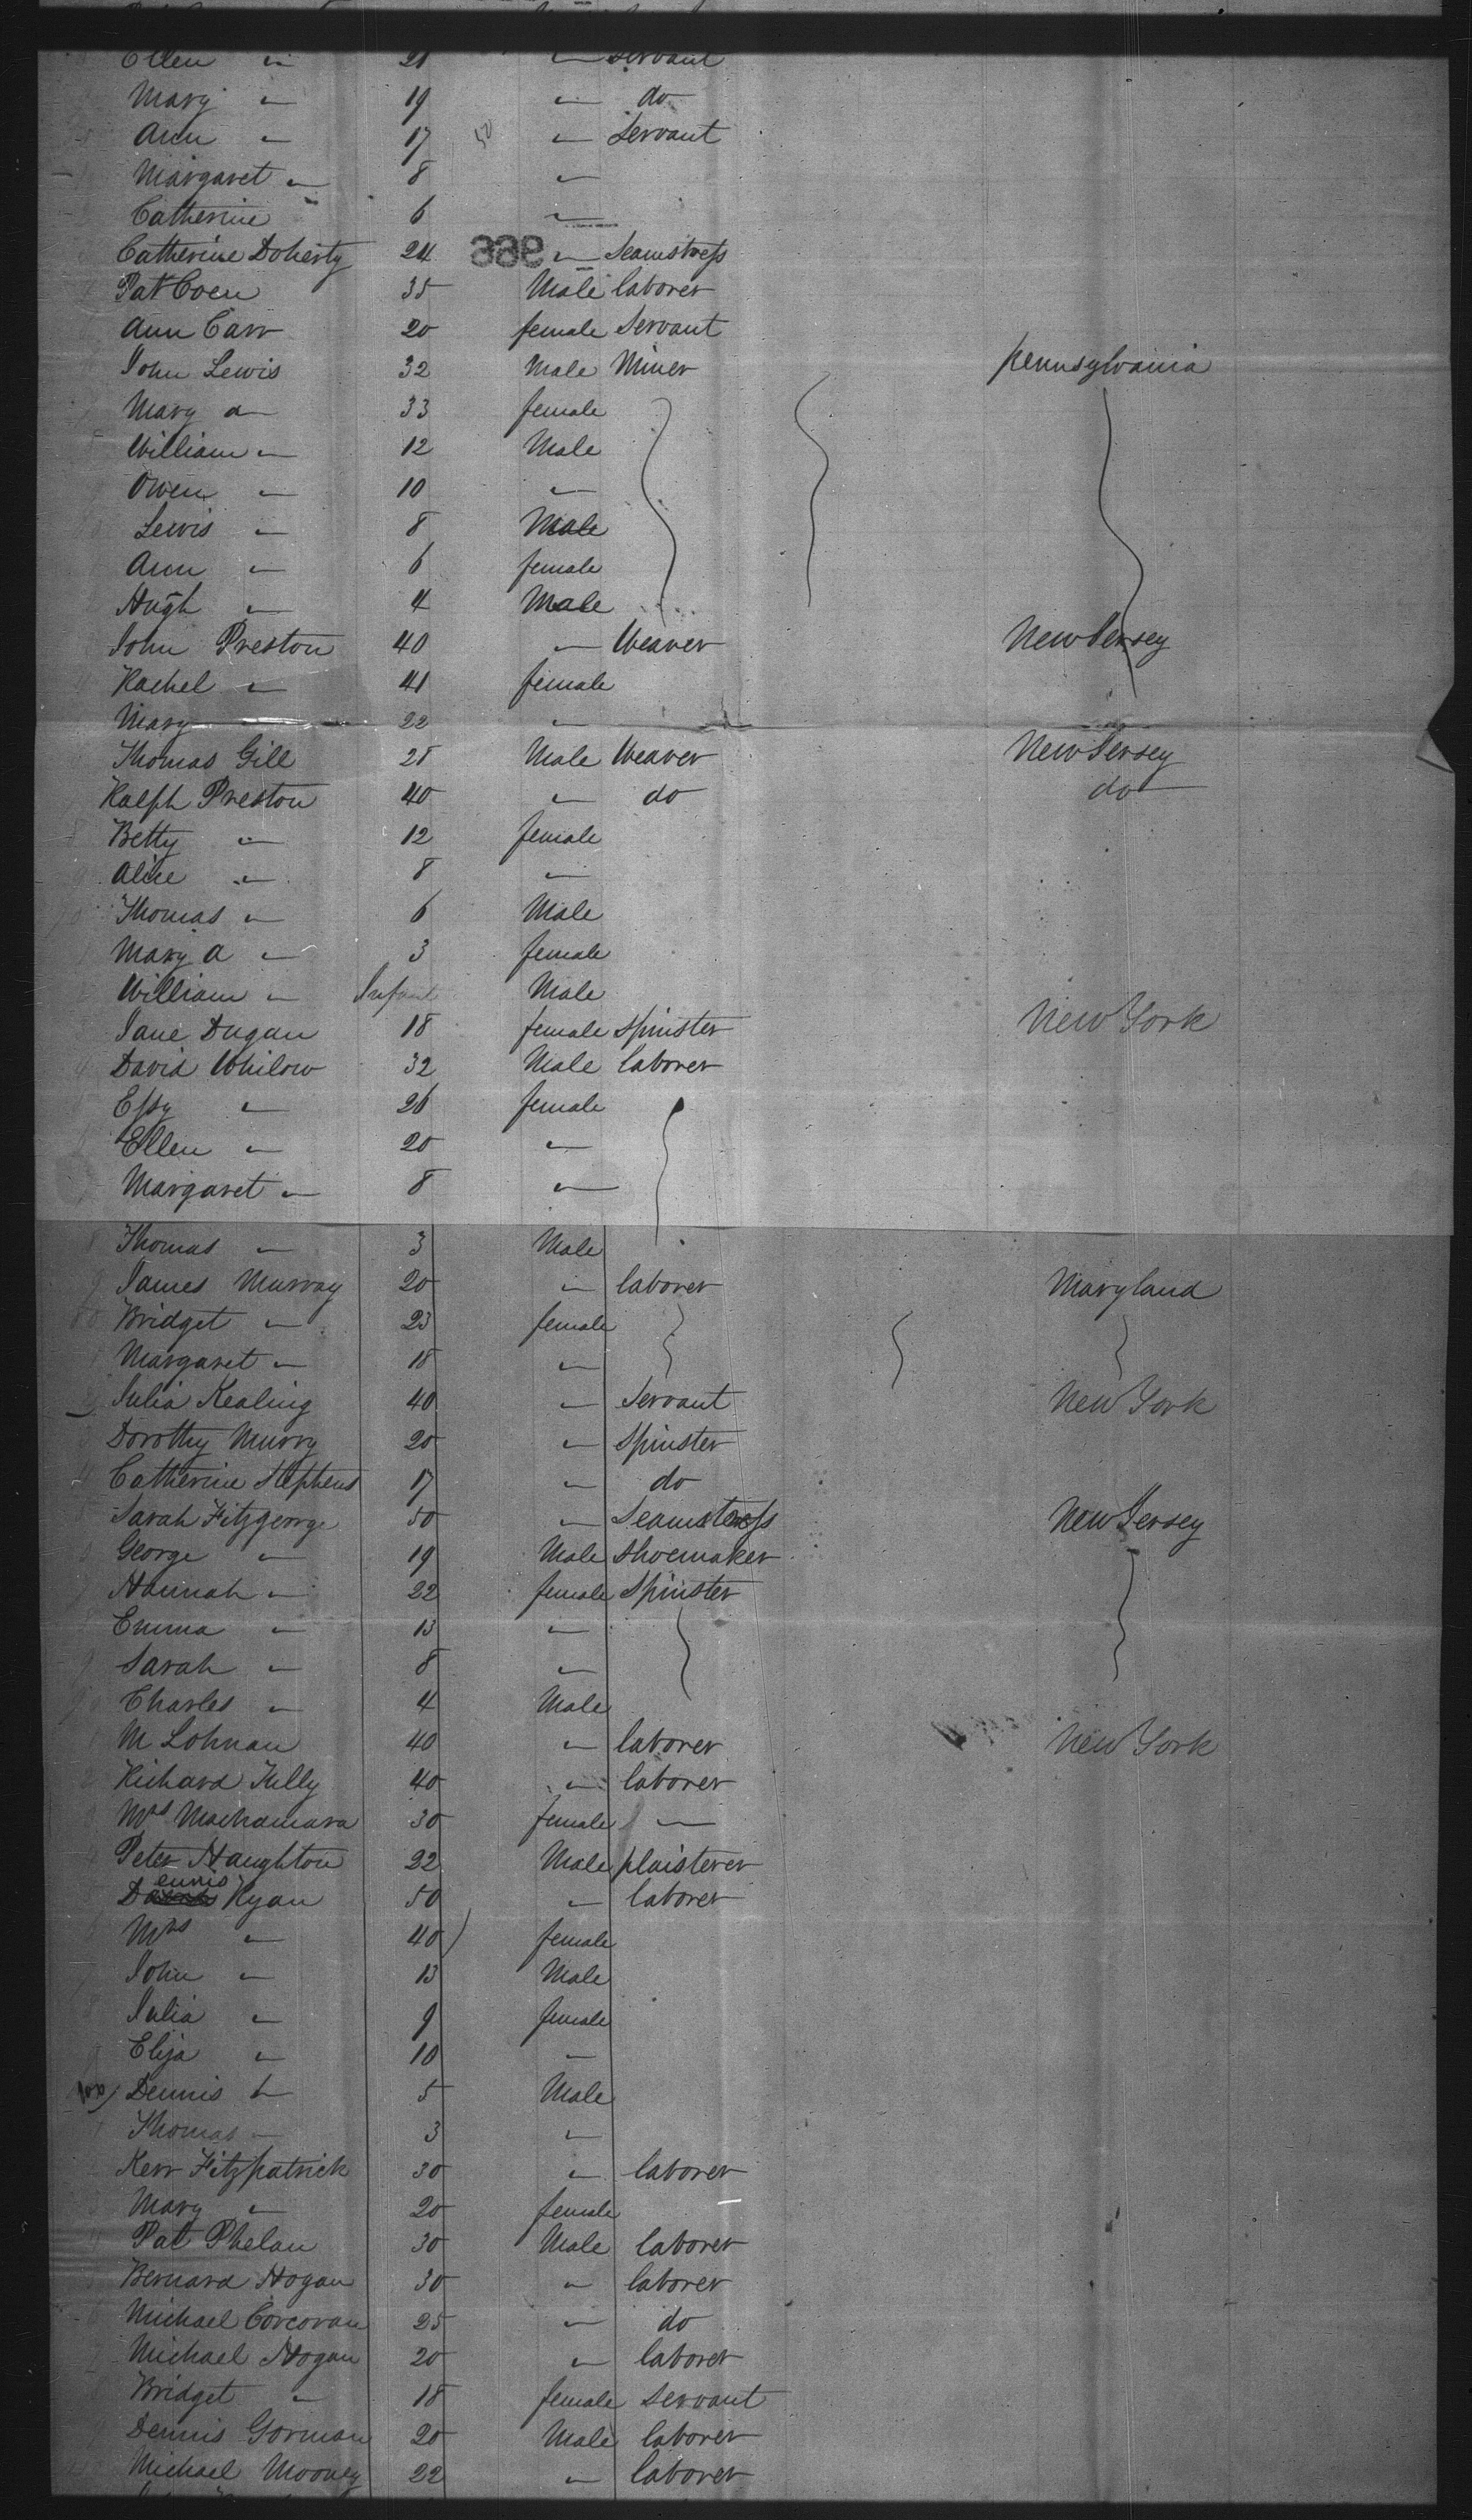 Ellen " 21 " Servant
Mary " 19 " do
Ann " 17 " Servant
Margaret " 8 "
Catherine 6 "
Catherine Doherty 24 " Seamstress
Pat Coen 35 Male laborer
Ann Carr 20 female Servant
John Lewis 32 Male Miner Pennsylvania
Mary a " 33 female
William " 12 Male
Owen " 10 "
Lewis " 8 Male
Ann " 6 female
Hugh " 4 Male
John Preston 40 " Weaver New Jersey
Rachel " 41 female
Mary 22 "
Thomas Gill 28 Male Weaver New Jersey
Ralph Preston 40 " do do
Betty " 12 female
Alice " 8 "
Thomas " 6 Male
Mary A " 3 female
William " Infant Male
Jane Dugan 18 female Spinster New York
David Whilow 32 Male laborer
Essy " 26 female
Ellen " 20 "
Margaret " 8 "
Thomas " 3 Male
James Murray 20 " laborer Maryland
Bridget " 23 female
Margaret " 18 "
Julia Kealing 40 " Servant New York
Dorothy Murry 20 " Spinster
Catherine Stephens 17 " do
Sarah Fitzgeorge 50 " Seamstress New Jersey
George " 19 Male Shoemaker
Hannah " 22 female Spinster
Emma " 13 "
Sarah " 8 "
Charles " 4 Male
M Lohnan 40 " laborer New York
Richard Tully 40 " laborer
Mrs Machamara 30 female "
Peter Haughton 22 Male plaisterer
Dennis Ryan 50 " laborer
Mrs " 40 female
John " 13 Male
Julia " 9 female
Eliza " 10 "
Dennis " 5 Male
Thomas " 3 "
Kerr Fitzpatrick 30 " laborer
Mary " 20 female
Pat Phelan 30 Male laborer
Bernard Hogan 30 " laborer
Michael Corcoran 25 " do
Michael Hogan 20 " laborer
Bridget " 18 female Servant
Dennis Gorman 20 Male laborer
Michael Mooney 22 " laborer